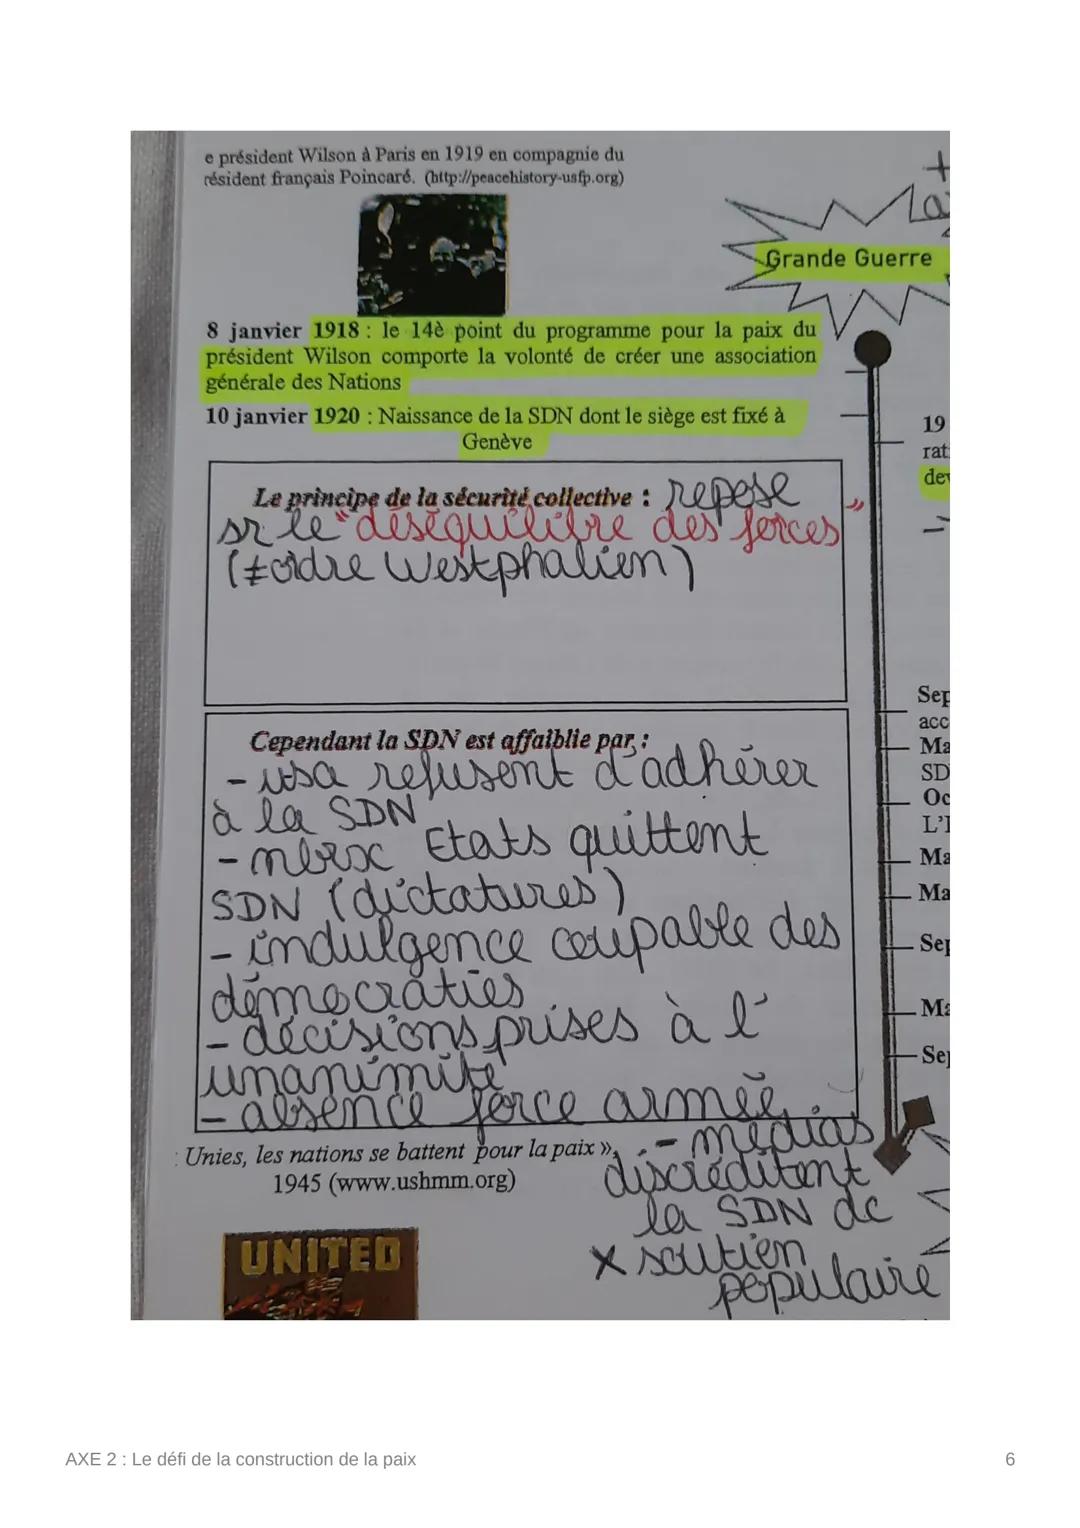 e président Wilson à Paris en 1919 en compagnie du
résident français Poincaré. (http://peacehistory-usfp.org)
+
Grande Guerre
8 janvier 1918 : le 14è point du programme pour la paix du
président Wilson comporte la volonté de créer une association
générale des Nations
10 janvier 1920 : Naissance de la SDN dont le siège est fixé à
Genève
19
rat
dev
Le principe de la sécurité collective : repose
sr le "déséquilibre des forces"
(≠ordre Westphalien)
Sep
acc
Ma
SD
Oc
L'I
Ma
Ma
Sep
Ma
Sep
Cependant la SDN est affaiblie par :
- usa refusent d'adhérer
à la SDN
- nbrx Etats quittent
SDN (dictatures)
- indulgence coupable des
démocraties
- décisions prises à l'
unanimité
- absence force armée
- médias
discréditent
la SDN dc
x soutien
populaire
Unies, les nations se battent pour la paix »,
1945 (www.ushmm.org)
UNITED
AXE 2 : Le défi de la construction de la paix
6